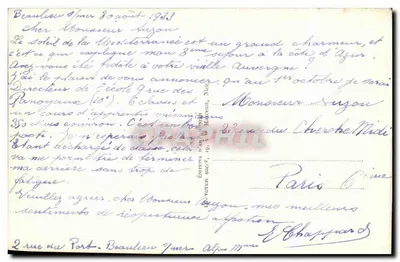 Beaulieu s/mer 30 août 1933
Cher Monsieur Auzou
Le soleil de la Méditerranée est un grand charmeur, et
c'est ce qui explique mon 8ème séjour à la côte d'Azur.
Avez-vous été fidèle à votre vieille Auvergne?
J'ai le plaisir de vous annoncer, qu'au 1er octobre je serai
Directeur de l'école 9 rue des
Panoyaux (20e). 6 classes et
un cours d'apprentis
350 élèves environ. C'est un bon
poste. Je n'espérais pas
Étant déchargé de classe, cela
va me permettre de terminer
ma carrière sans trop de
fatigue.
Veuillez agréer, cher Monsieur Auzou, mes meilleurs
sentiments de respectueuse affection
E. Chappard
2 rue du Port. Beaulieu s/mer Alpes Mmes
Monsieur Auzou
rue du Cherche Midi
Paris 6ème